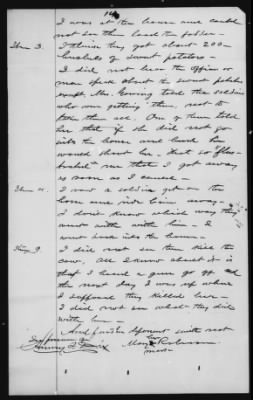 I was at the house and could
not see them load the fodder –
Item 3. I think they got about 200
bushels of sweet potatoes –
I did not hear the officer or
men speak about the sweet potatoes
except Mrs. told the soldiers
who were getting them, not to
take them all. One of them told
her that if she did not go
into the house and hush he
would shoot her. That so
me that I got away
as soon as I could –
Item 4. I saw a soldier get on the
horse and ride him away –
I don't know which way they
went with him – I
went back into the house –
Item 9. I did not see them kill the
cow. All I know about it is
that I heard a gun go off and
the next day I was up where
I supposed they killed her –
I did not see what they did
with her –
And further deponent saith not
Mary Robinson
mark